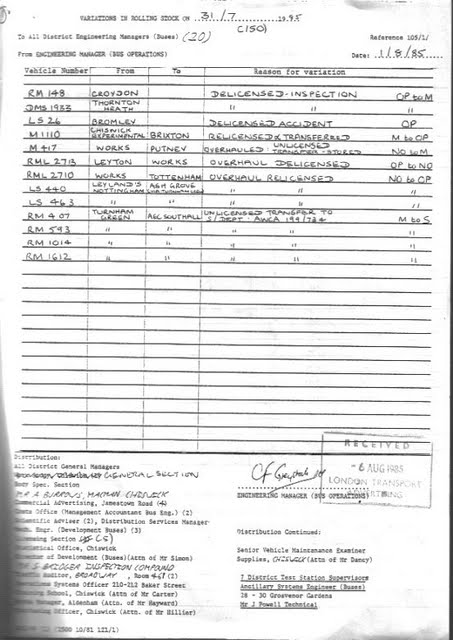 VARIATIONS IN ROLLING STOCK ON 31/7 1985
(150)
To All District Engineering Managers (Buses) (20) Reference 105/1/
From ENGINEERING MANAGER (BUS OPERATIONS) Date: 1/8/85
Vehicle Number From To Reason for variation
RM 148 CROYDON DELICENSED-INSPECTION OP to M
DMS 1933 THORNTON HEATH " " "
LS 26 BROMLEY DELICENSED ACCIDENT OP
M 1110 CHISWICK EXPERIMENTAL BRIXTON RELICENSED & TRANSFERRED M to OP
M 417 WORKS PUTNEY OVERHAULED UNLICENSED TRANSFER-STORED NO to M
RML 2713 LEYTON WORKS OVERHAUL DELICENSED OP to NO
RML 2710 WORKS TOTTENHAM OVERHAUL RELICENSED NO to OP
LS 440 LEYLAND'S NOTTINGHAM ASH GROVE " " "
LS 463 " " " " "
RM 407 TURNHAM GREEN AEC SOUTHALL UNLICENSED TRANSFER TO S/DEPT. AWCA 199/784 M to S
RM 593 " " " " "
RM 1014 " " " " "
RM 1612 " " " " "
Distribution:
All District General Managers
GENERAL SECTION
Body Spec. Section
MR A BURROWS, CHISWICK
Commercial Advertising, Jamestown Road (4)
Costs Office (Management Accountant Bus Eng.) (2)
Scientific Adviser (2), Distribution Services Manager
Engr. (Development Buses) (3)
Licensing Section (5)
Statistical Office, Chiswick
of Development (Buses)(Attn of Mr Simon)
MR S BRIDGER INSPECTION COMPOUND
Auditor, BROADWAY, Room 461 (2)
Systems Officer 210-212 Baker Street
School, Chiswick (Attn of Mr Carter)
Manager, Aldenham (Attn. of Mr Hayward)
Officer, Chiswick (Attn. of Mr Hillier)
(2500 10/81 121/1)
RECEIVED
-6 AUG 1985
LONDON TRANSPORT
ADVERTISING
ENGINEERING MANAGER (BUS OPERATIONS)
Distribution Continued:
Senior Vehicle Maintenance Examiner
Supplies, CHISWICK (Attn of Mr Dancy)
7 District Test Station Supervisors
Ancillary Systems Engineer (Buses)
28 - 30 Grosvenor Gardens
Mr J Powell Technical